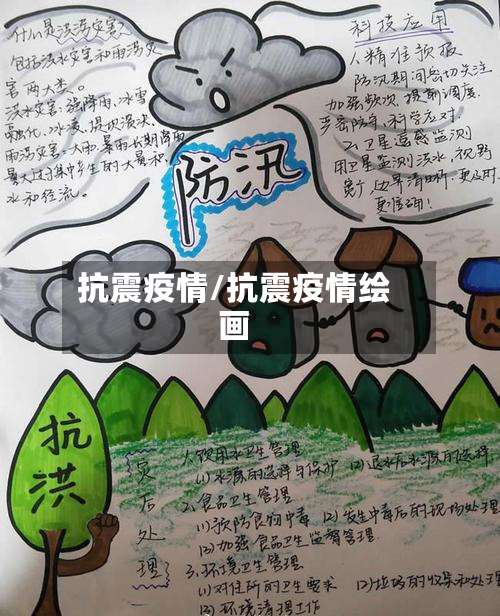 什么是洪涝灾害?
包括洪水灾害和雨涝灾
害两大类。
洪水灾害:强降雨、冰雪
融化、冰凌、堤坝溃决
雨涝灾害:大雨、暴雨长期降雨
量大过于集中产生的大量积
水和径流。
科技应用
1.精准预报
防汛期间密切关注
加强频次,提前调度,
严密防守,科学应对
2.卫星遥感监测
用卫星监测洪水,视野
宽广,边界清晰,更及时,
更准确!
防汛
抗震疫情/抗震疫情绘
画
抗
洪
灾
后
处
理
1.饮用水卫生管理
(1)水源的选择与保护 (2)退水后水源的选择
2.食品卫生管理
(1)预防食物中毒 (2)发生中毒后的现场处理
(3)加强食品卫生监督管理
3.环境卫生管理
(1)对住所的卫生要求 (2)垃圾的收集和处理
(3)环境清理工作